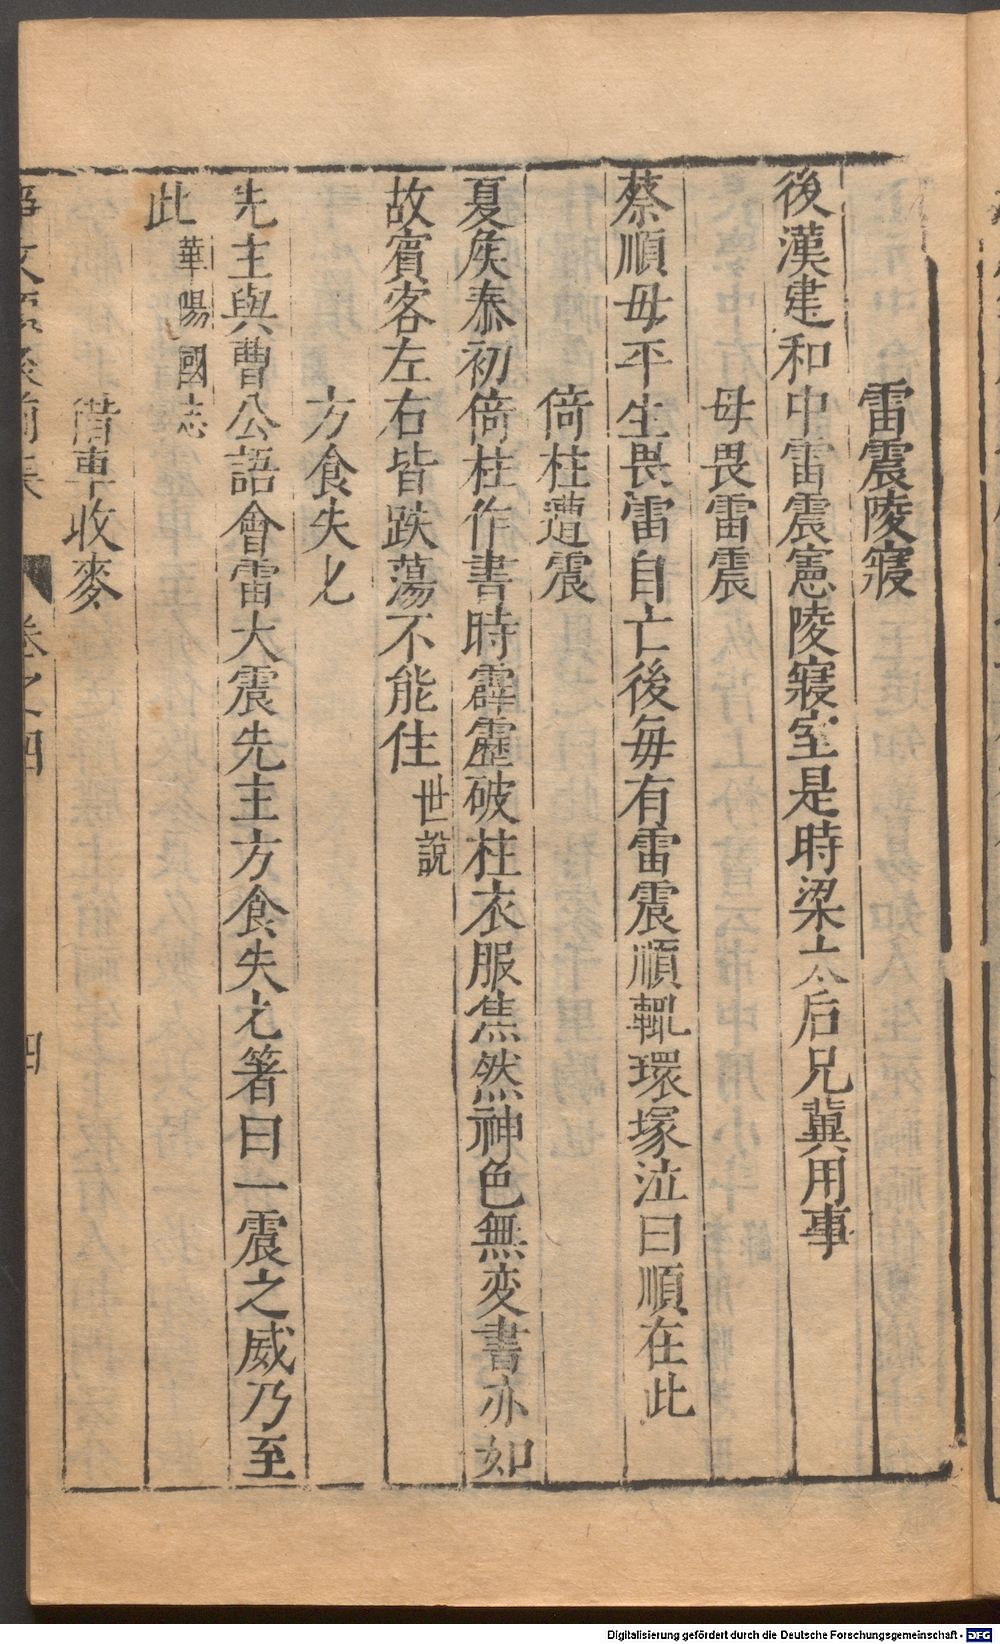 雷震陵寢
後漢建和中雷震憲陵寢室是時梁太后兄冀用事
母畏雷震
蔡順母平生畏雷自亡後每有雷震順輒環塚泣曰順在此
倚柱遭震
夏侯泰初倚柱作書時霹靂破柱衣服焦然神色無变書亦如
故賓客左右皆跌蕩不能住世說
方食失匕
先主與曹公語會雷大震先主方食失匕箸曰一震之威乃至
此華陽國志
借車收麥
卷之四
四
Digitalisierung gefördert durch die Deutsche Forschungsgemeinschaft - DFG